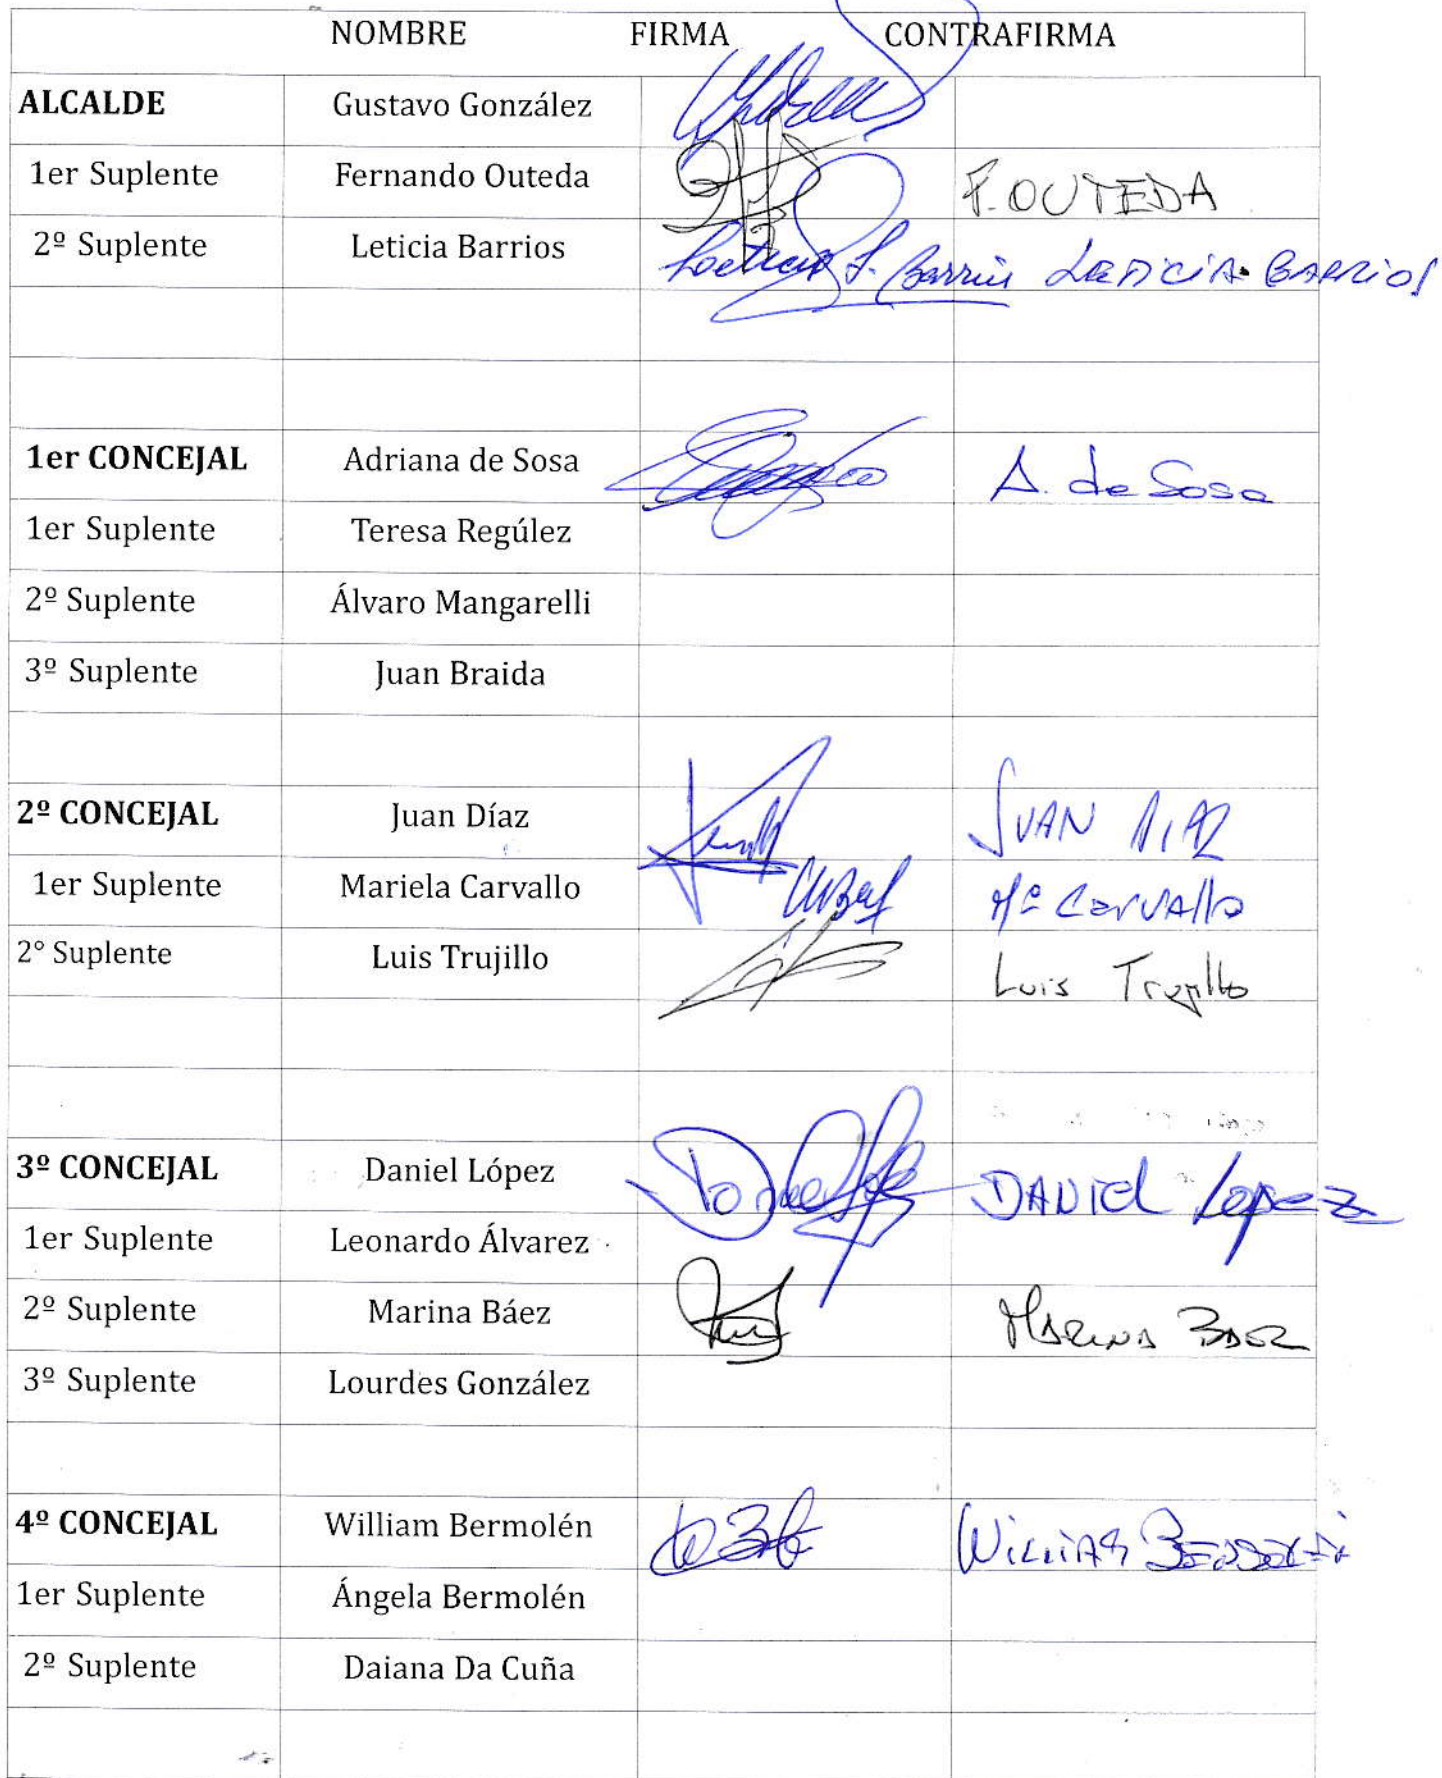 NOMBRE FIRMA CONTRAFIRMA
ALCALDE Gustavo González
1er Suplente Fernando Outeda F. OUTEDA
2º Suplente Leticia Barrios Leticia J. Barrios LETICIA BARRIOS
1er CONCEJAL Adriana de Sosa A. de Sosa
1er Suplente Teresa Regúlez
2º Suplente Álvaro Mangarelli
3º Suplente Juan Braida
2º CONCEJAL Juan Díaz JUAN DIAZ
1er Suplente Mariela Carvallo Mª Carvallo
2° Suplente Luis Trujillo Luis Trujillo
3º CONCEJAL Daniel López DANIEL Lopez
1er Suplente Leonardo Álvarez
2º Suplente Marina Báez MARINA BAEZ
3º Suplente Lourdes González
4º CONCEJAL William Bermolén WILLIAM
1er Suplente Ángela Bermolén
2º Suplente Daiana Da Cuña